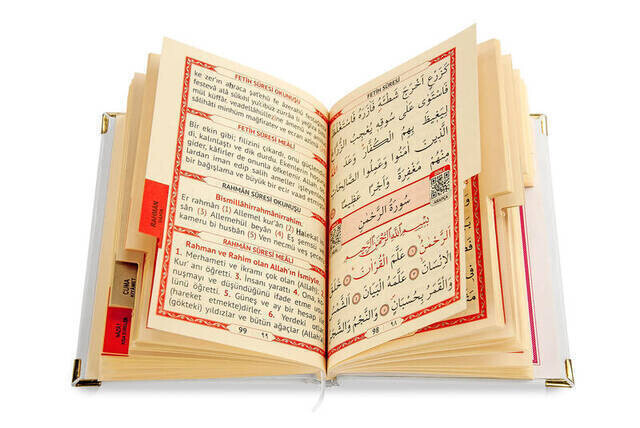 FETİH SÛRESİ OKUNUŞU
ke zer'in ahrace şat'ehû fe âzerahû
festevâ alâ sûkıhî yu'cibüz zürrâa li yeğîza
mül küffâr, veadellâhüllezîne âmenû ve
sâlihâti minhüm mağfiratev ve ecran
FETİH SÛRESİ MEÂLİ
Bir ekin gibi; filizini çıkardı, onu güçlen
di, kalınlaştı ve dik durdu. Ekenlerin
gider, kâfirler de onunla öfkelenir. Allah,
lardan iman edip salih ameller işleyen
bir bağışlama ve büyük bir ecir vaad etmiş
RAHMÂN SÛRESİ OKUNUŞU
Bismillâhirrahmânirrahîm.
Er rahmân (1) Allemel kur'ân (2) Halekal
sân (3) Allemehül beyân (4) Eş şemsü
kameru bi husbân (5) Ven necmü veş
RAHMÂN SÛRESİ MEÂLİ
Rahman ve Rahim olan Allah'ın İsmiyle.
1. Merhameti ve ikramı çok olan (Allah),
Kur'anı öğretti. 3. İnsanı yarattı 4. Ona, ko
nuşmayı ve düşündüğünü ifade etme
lünü öğretti. 5. Güneş ve ay bir hesap ile
(hareket etmekte)dirler. 6. Yerdeki otlar
(gökteki) yıldızlar ve bütün ağaçlar (Allah'
99 ٩٩
RAHMÂN
CUMA
FETİH SÛRESİ
كَزَرْعٍ اَخْرَجَ شَطْـَٔهُ فَاٰزَرَهُ فَاسْتَغْلَظَ
فَاسْتَوٰى عَلٰى سُوقِهِ يُعْجِبُ الزُّرَّاعَ
لِيَغِيظَ بِهِمُ الْكُفَّارَ وَعَدَ اللّٰهُ
الَّذِينَ اٰمَنُوا وَعَمِلُوا الصَّالِحَاتِ
مِنْهُمْ مَغْفِرَةً وَاَجْرًا عَظِيمًا
سُورَةُ الرَّحْمٰنِ
بِسْمِ اللّٰهِ الرَّحْمٰنِ الرَّحِيمِ
اَلرَّحْمٰنُ عَلَّمَ الْقُرْاٰنَ خَلَقَ
الْاِنْسَانَ عَلَّمَهُ الْبَيَانَ اَلشَّمْسُ
وَالْقَمَرُ بِحُسْبَانٍ وَالنَّجْمُ وَالشَّجَرُ
98 ٩٨